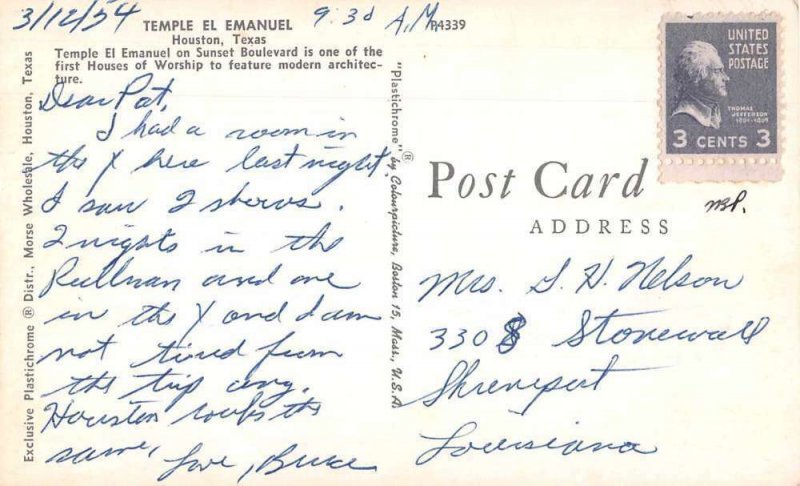 3/12/54 9:30 A.M.
TEMPLE EL EMANUEL
P4339
Houston, Texas
Temple El Emanuel on Sunset Boulevard is one of the
first Houses of Worship to feature modern architec-
ture.
Dear Pat,
I had a room in
the Y here last night.
I saw 2 shows.
2 nights in the
Pullman and one
in the Y and I am
not tired from
the trip any.
Houston looks the
same,
Love, Bruce
Exclusive Plastichrome ® Distr., Morse Wholesale, Houston, Texas
"Plastichrome"® by Colourpicture, Boston 15, Mass., U.S.A.
Post Card
ADDRESS
UNITED
STATES
POSTAGE
THOMAS
JEFFERSON
1801-1809
3 CENTS 3
Mrs. S. H. Nelson
3308 Stonewall
Shreveport
Louisiana